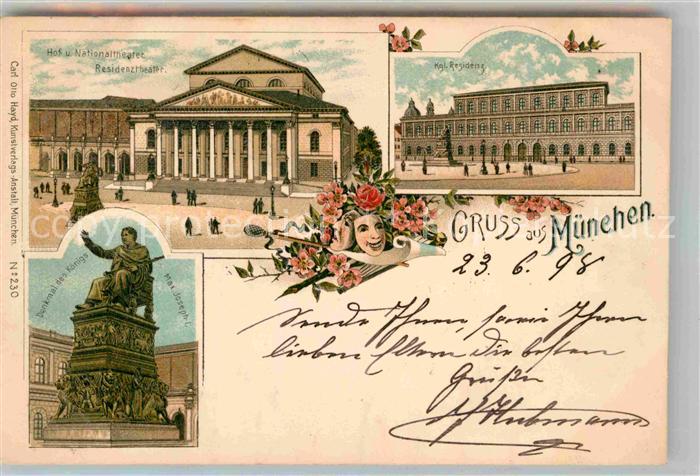 Hof. u. Nationaltheater.
Residenztheater.
Kgl. Residenz.
Carl Otto Hayd, Kunstverlags-Anstalt, München.
No 230
Gruss aus München.
Denkmal des Königs
Max Joseph I.
23. 6. 98
Sende Ihnen, sowie Ihren
lieben Eltern die besten
Grüße